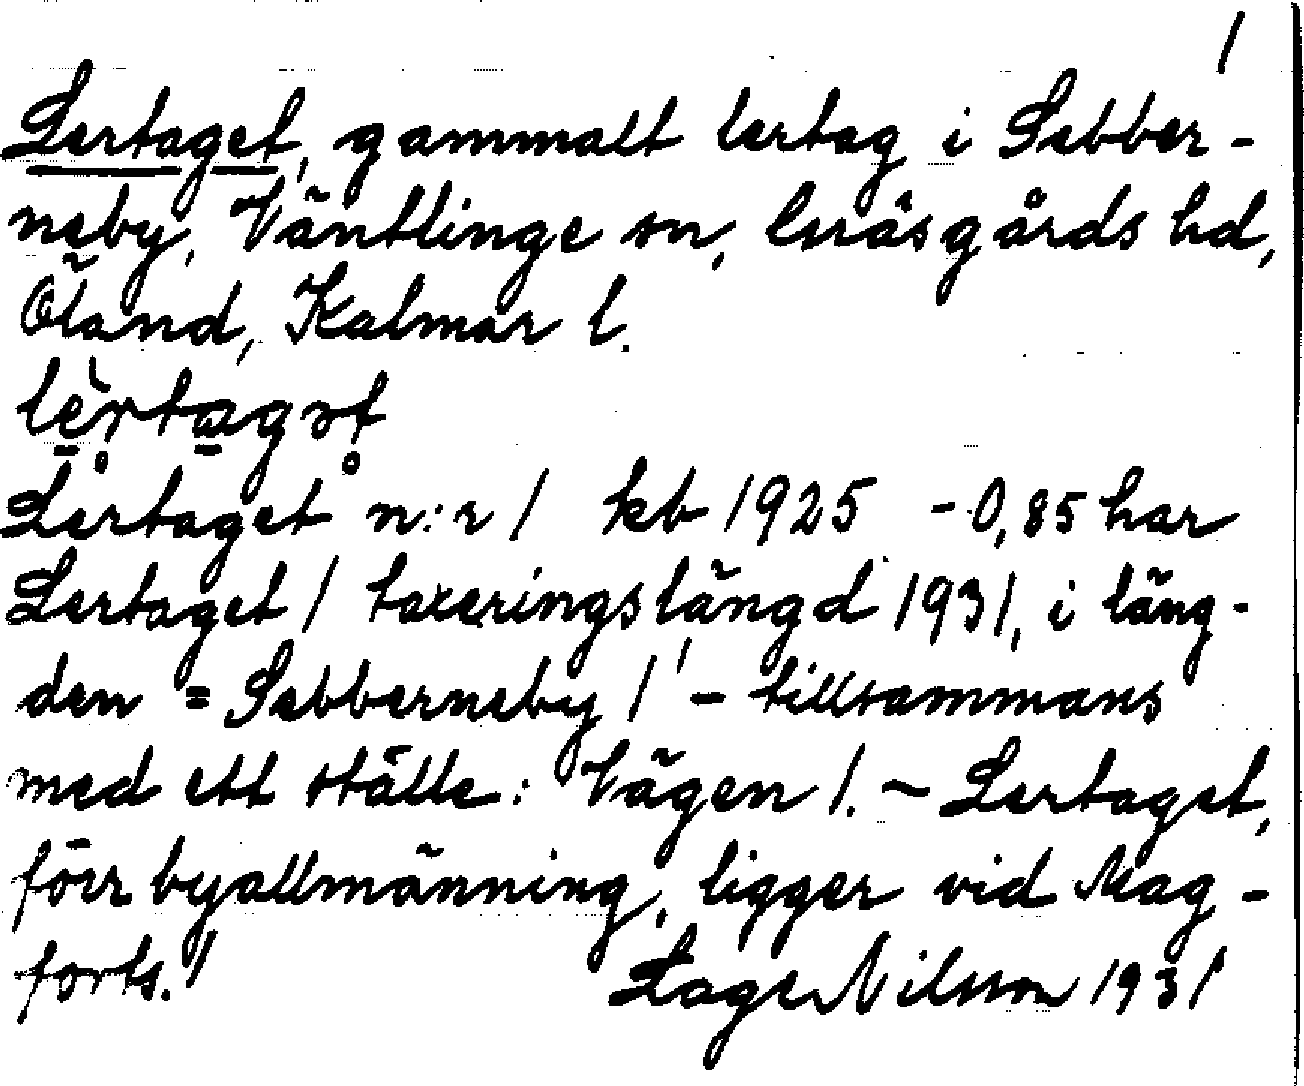 1
Lertaget, gammalt lertag i Sebber-
neby, Ventlinge sn, Gräsgårds hd,
Öland, Kalmar l.
Lertaget n:r 1 kb 1925 - 0,85 har
Lertaget 1 taxeringslängd 1931, i läng-
den = Sebberneby 1' - tillsammans
med ett ställe: Vägen 1. - Lertaget,
förr byallmänning, ligger vid Mag-
forts. // Lage Nilsson 1931